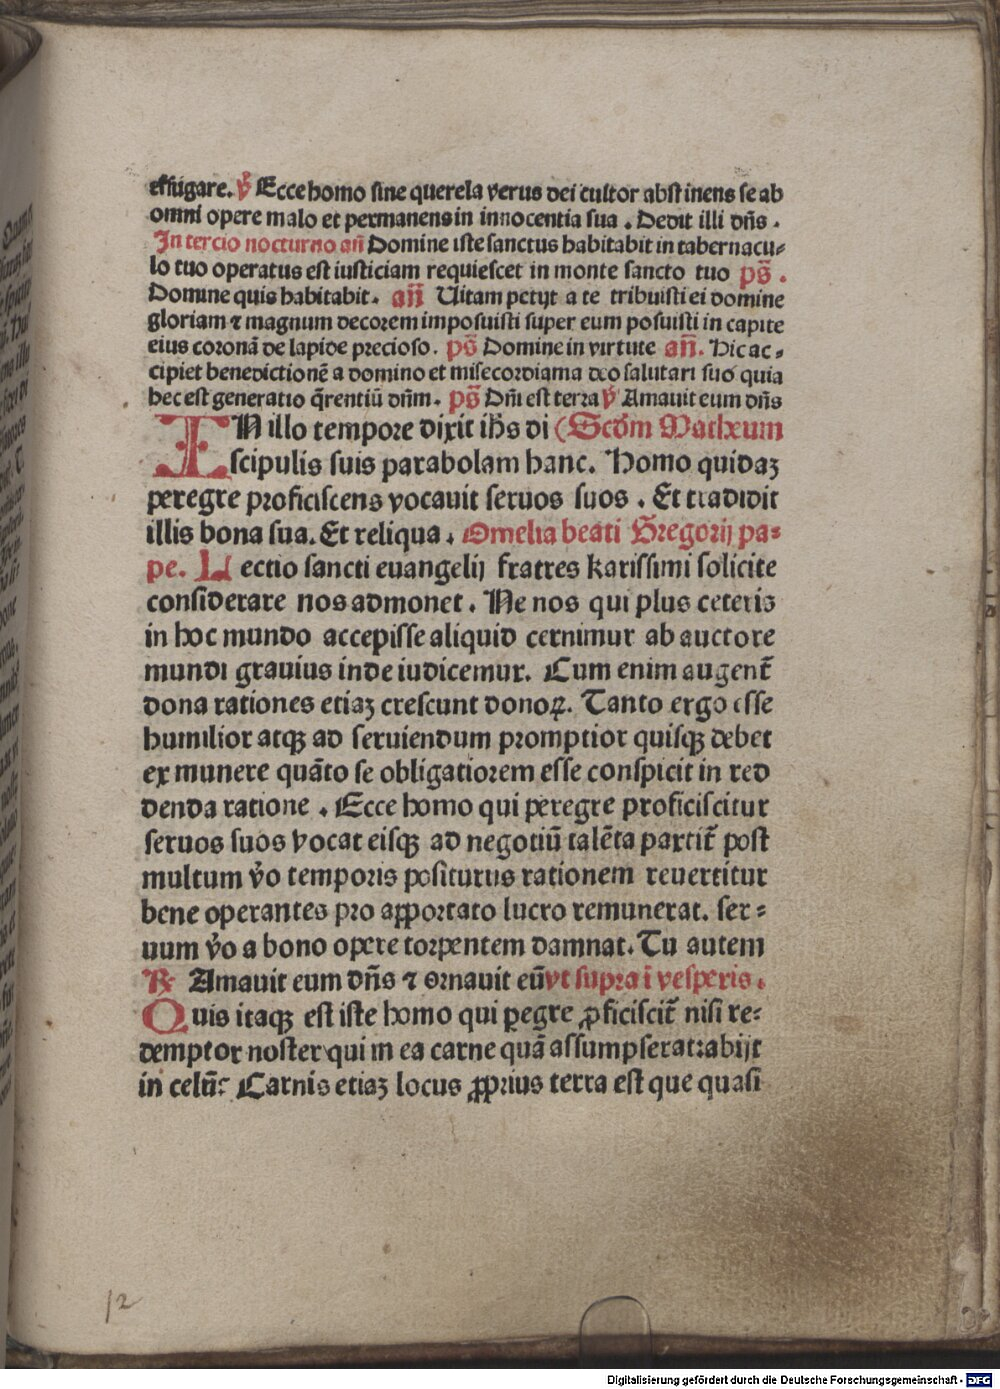 effugare. v̄ Ecce homo sine querela verus dei cultor abstinens se ab
omni opere malo et permanens in innocentia sua . Dedit illi dn̄s .
In tercio nocturno an̄ Domine iste sanctus habitabit in tabernacu-
lo tuo operatus est iusticiam requiescet in monte sancto tuo ps̄ .
Domine quis habitabit . an̄ Uitam petijt a te tribuisti ei domine
gloriam ⁊ magnum decorem imposuisti super eum posuisti in capite
eius coronā de lapide precioso . ps̄ Domine in virtute an̄. Hic ac-
cipiet benedictionē a domino et misecordiam a deo salutari suo quia
hec est generatio q̄rentiū dn̄m . ps̄ Dn̄i est terra v̄ Amauit eum dn̄s
IN illo tempore dixit ih̄s di (Scd̄m Matheum
scipulis suis parabolam hanc. Homo quidaꝫ
peregre proficiscens vocauit seruos suos . Et tradidit
illis bona sua. Et reliqua . Omelia beati Gregorij pa-
pe. Lectio sancti euangelij fratres karissimi solicite
considerare nos admonet . Ne nos qui plus ceteris
in hoc mundo accepisse aliquid cernimur ab auctore
mundi grauius inde iudicemur. Cum enim augent̄
dona rationes etiaꝫ crescunt donoꝝ. Tanto ergo esse
humilior atqꝫ ad seruiendum promptior quisqꝫ debet
ex munere quāto se obligatiorem esse conspicit in red
denda ratione . Ecce homo qui peregre proficiscitur
seruos suos vocat eisqꝫ ad negotiū talēta partit̄ post
multum v̄o temporis positurus rationem reuertitur
bene operantes pro apportato lucro remunerat. ser-
uum v̄o a bono opere torpentem damnat. Tu autem
℟ Amauit eum dn̄s ⁊ ornauit eū vt supra ī vesperis .
Quis itaqꝫ est iste homo qui ꝑegre ꝓficiscit̄ nisi re-
demptor noster qui in ea carne quā assumpserat abijt
in celū? Carnis etiaꝫ locus ꝓprius terra est que quasi
12
Digitalisierung gefördert durch die Deutsche Forschungsgemeinschaft - DFG